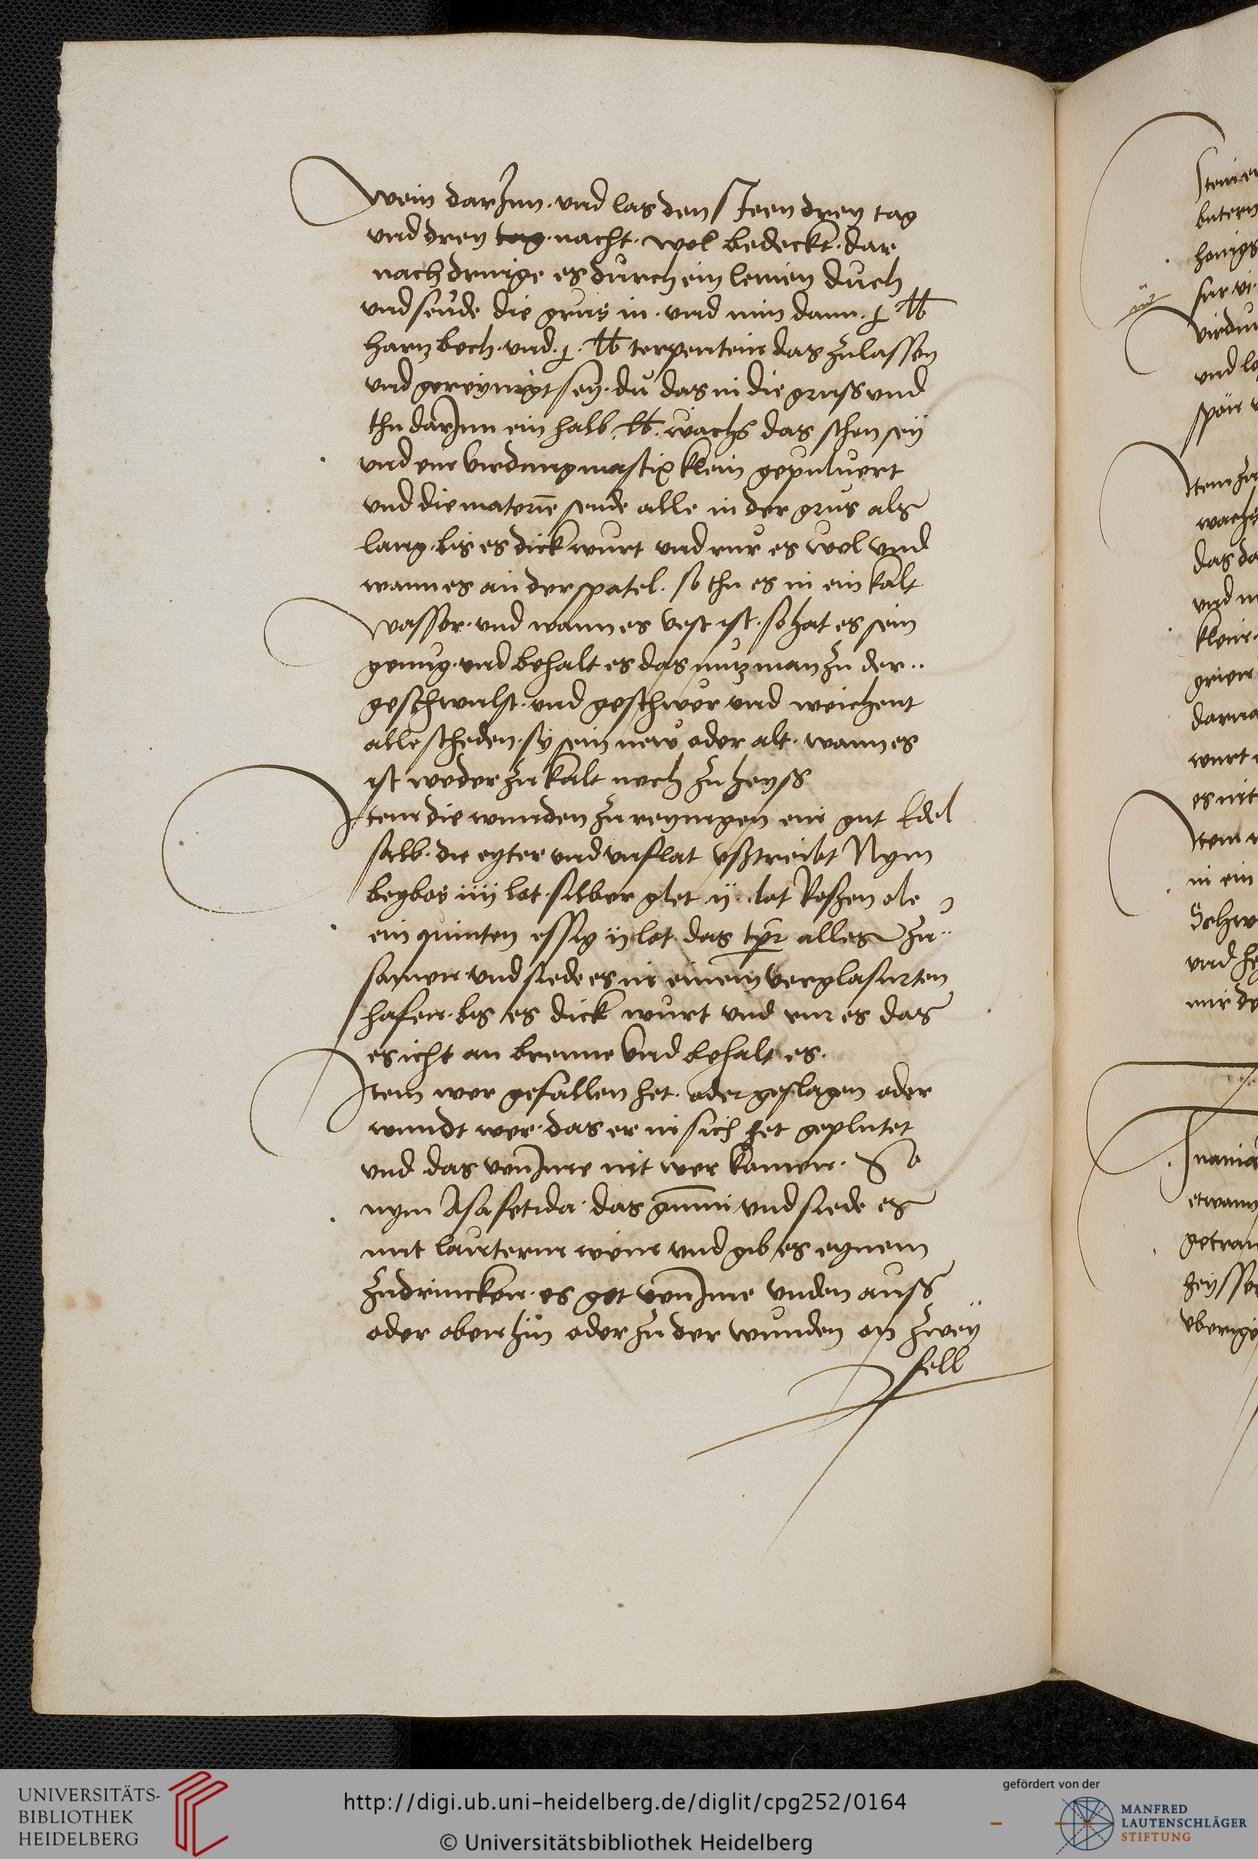 wein darJnn · vnd las den steen drey tag
vnd drey tag · nacht · wol bedeckt · dar
nach dringe es durch ein leinen duch
vnd seude die grus in · vnd nim dann · j · lb
hartz bech · vnd · j · lb terpentein das zulassen
vnd gereynigt sey · du das in die gruss vnd
thu darJnn ein halb · lb · wachs das schon sey
vnd ein virdung mastix klein gepuluert
vnd die materie seude alle in der grus als
lang · bis es dick wurt vnd rur es wol vnd
wann es an der spatel · so thu es in ein kalt
wasser · vnd wann es vest ist · so hat es sein
genug · vnd behalt es das nutz man zu der ··
geschwulst · vnd geschwer vnd weichent
alle scheden · sy sein new oder alt · wann es
ist weder zu kalt noch zu heyss
Item die wunden zu reyngen ein gut Edel
salb · die eyter vnd vnflat vsstreibt Nym
bleyweis iiij lot silber glet ij · lot Rosen ole
ein quinten essig ij lot das tpr alles zu ··
samen vnd siede es in einem verglasurten
hafen · bis es dick wurt vnd rur es das
es icht an brenne vnd behalt es ·
Item wer gefallen het · oder geslagen oder
wundt wer · das er in sich het geplutet
vnd das vonJme nit wer komen · So
nym Asafetida · das gummi vnd siede es
mit lauterm wein vnd gib es eynem
zu drincken · es get vonJme vnden auss
oder oben hin oder zu der wunden on zwey
fell
Item
wachs
das da
vnd
darna
wurt
es nit
Item
in ein
Schw
mit
etwann
UNIVERSITÄTS-
BIBLIOTHEK
HEIDELBERG
http://digi.ub.uni-heidelberg.de/diglit/cpg252/0164
© Universitätsbibliothek Heidelberg
gefördert von der
MANFRED
LAUTENSCHLÄGER
STIFTUNG